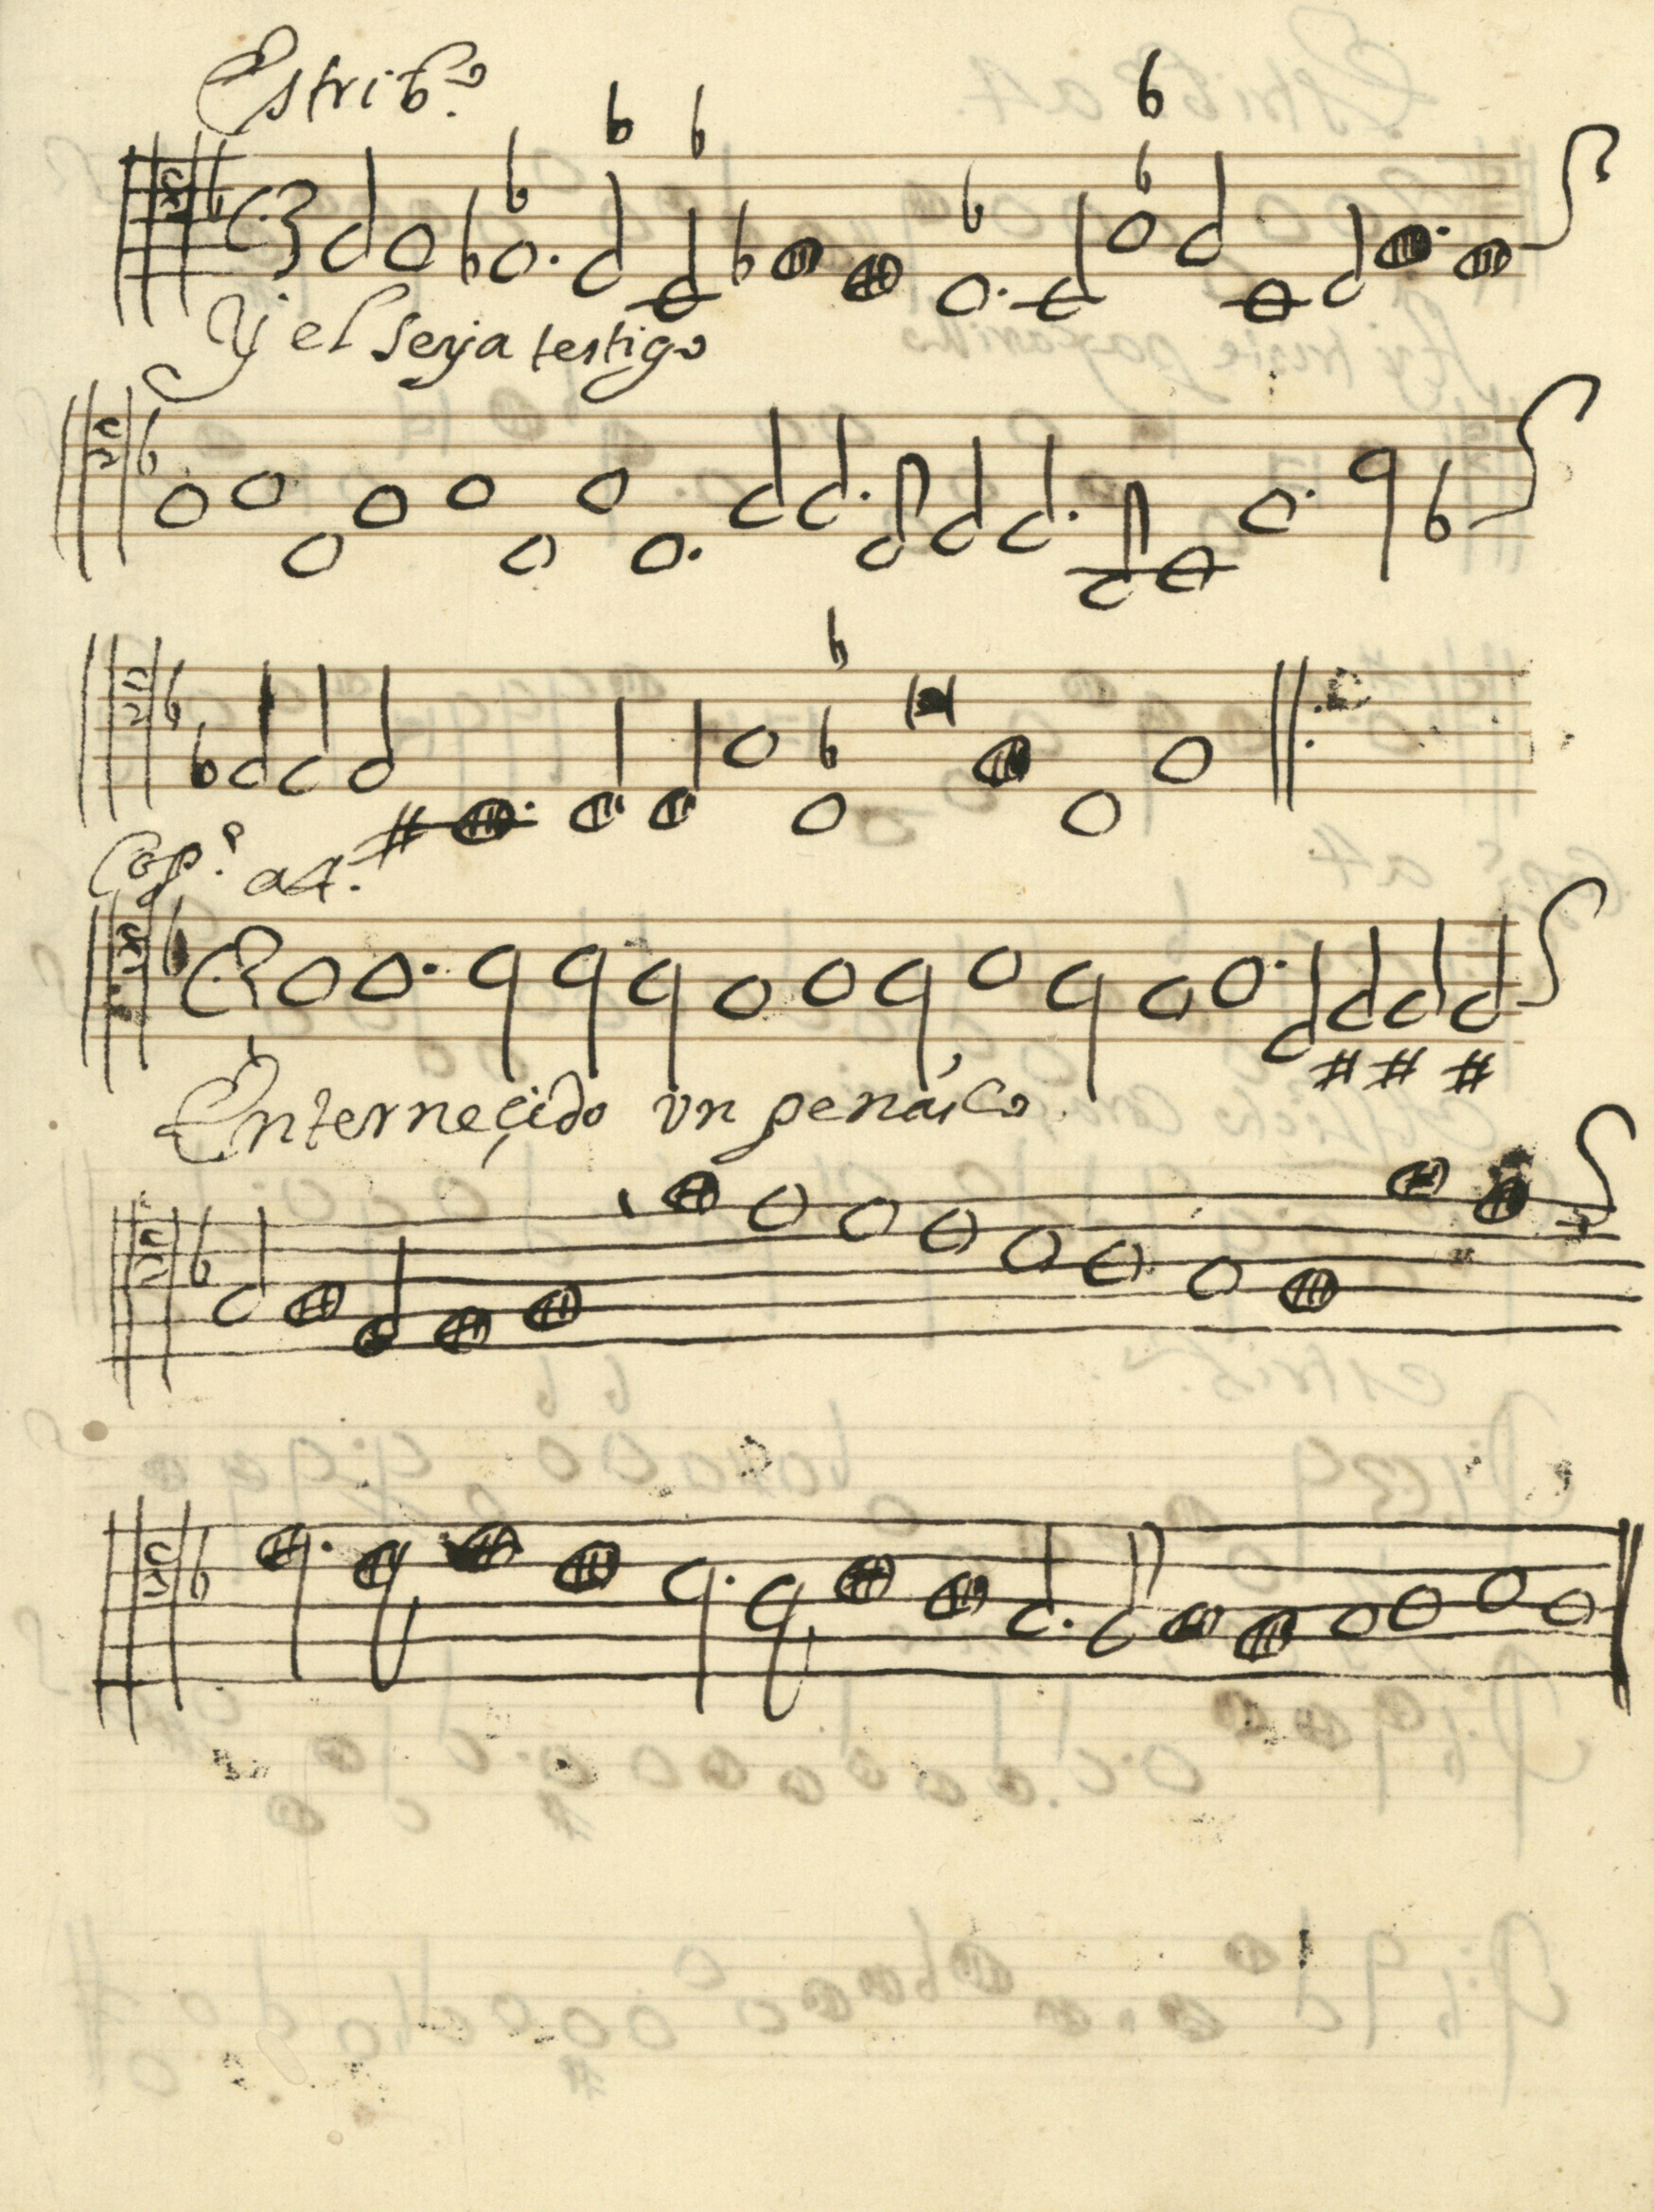 Estribo.
Y el serja testigo
Copas. a4.
Enterneçido vn penasco